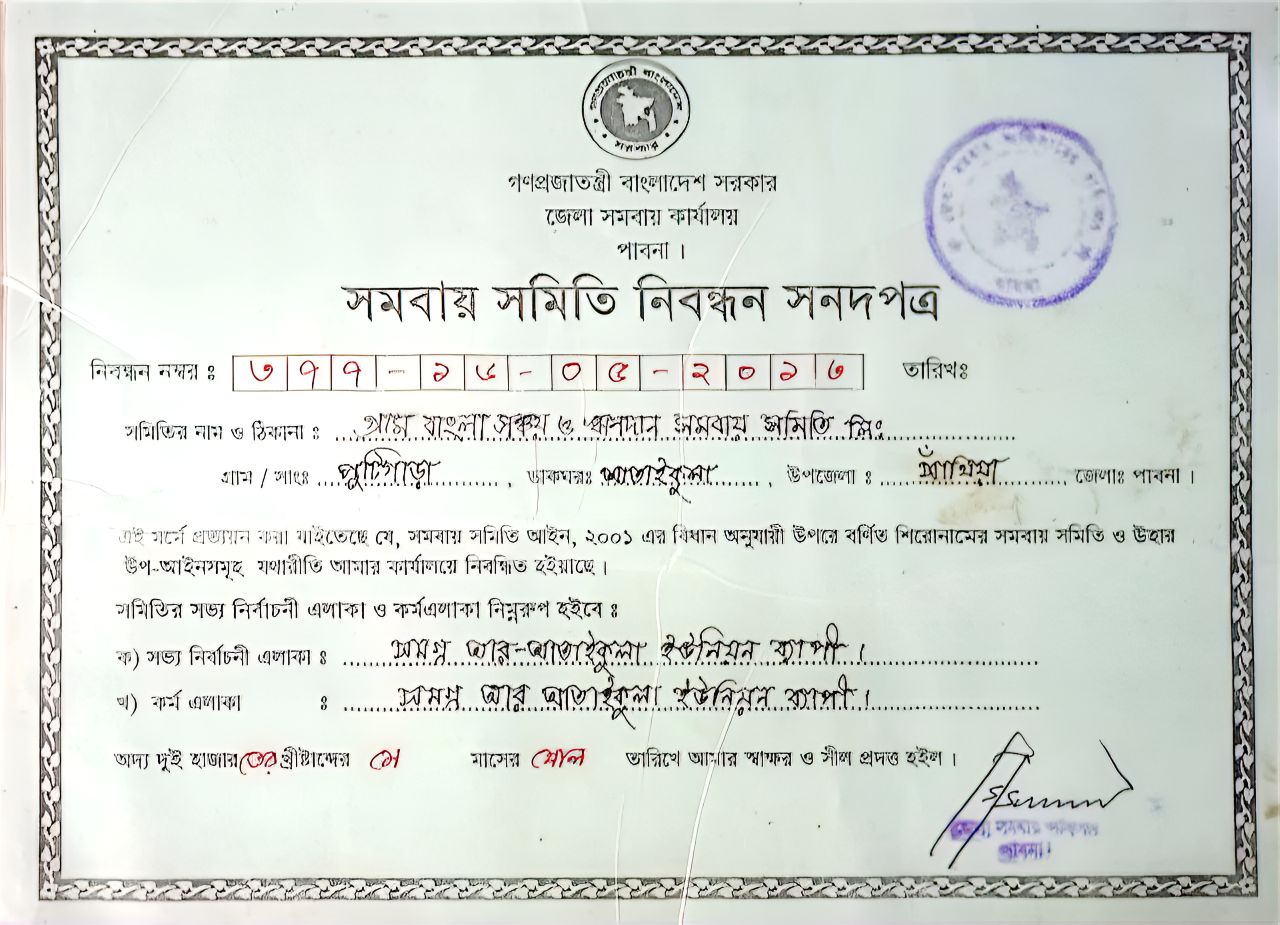 গণপ্রজাতন্ত্রী বাংলাদেশ
সরকার
গণপ্রজাতন্ত্রী বাংলাদেশ সরকার
জেলা সমবায় কার্যালয়
পাবনা ।
সমবায় সমিতি নিবন্ধন সনদপত্র
নিবন্ধন নম্বর ঃ ৩৭৭-১৬-০৫-২০১৩ তারিখঃ
সমিতির নাম ও ঠিকানা ঃ গ্রাম বাংলা সঞ্চয় ও ঋণদান সমবায় সমিতি লিঃ
গ্রাম / সাংঃ পুটিগাড়া , ডাকঘরঃ আতাইকুলা , উপজেলা ঃ সাঁথিয়া জেলাঃ পাবনা ।
এই মর্মে প্রত্যয়ন করা যাইতেছে যে, সমবায় সমিতি আইন, ২০০১ এর বিধান অনুযায়ী উপরে বর্ণিত শিরোনামের সমবায় সমিতি ও উহার
উপ-আইনসমূহ যথারীতি আমার কার্যালয়ে নিবন্ধিত হইয়াছে ।
সমিতির সভ্য নির্বাচনী এলাকা ও কর্মএলাকা নিম্নরূপ হইবে ঃ
ক) সভ্য নির্বাচনী এলাকা ঃ সমগ্র আর-আতাইকুলা ইউনিয়ন ব্যাপী ।
খ) কর্ম এলাকা ঃ সমগ্র আর আতাইকুলা ইউনিয়ন ব্যাপী ।
অদ্য দুই হাজার তের খ্রীষ্টাব্দের মে মাসের ষোল তারিখে আমার স্বাক্ষর ও সীল প্রদত্ত হইল ।
জেলা সমবায় অফিসার
পাবনা ।